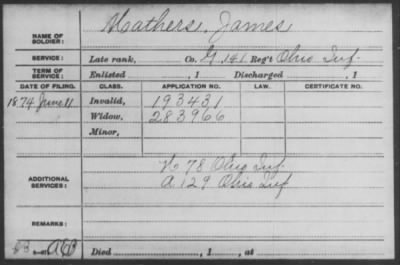 NAME OF SOLDIER: Mathers, James
SERVICE: Late rank, Co. G, 141 Reg't Ohio Inf.
TERM OF SERVICE: Enlisted , 1 Discharged , 1
DATE OF FILING. CLASS. APPLICATION NO. LAW. CERTIFICATE NO.
1874 June 11 Invalid, 193431
Widow, 283966
Minor,
ADDITIONAL SERVICES: 78 Ohio Inf.
A 129 Ohio Inf
REMARKS:
Died , 1 , at